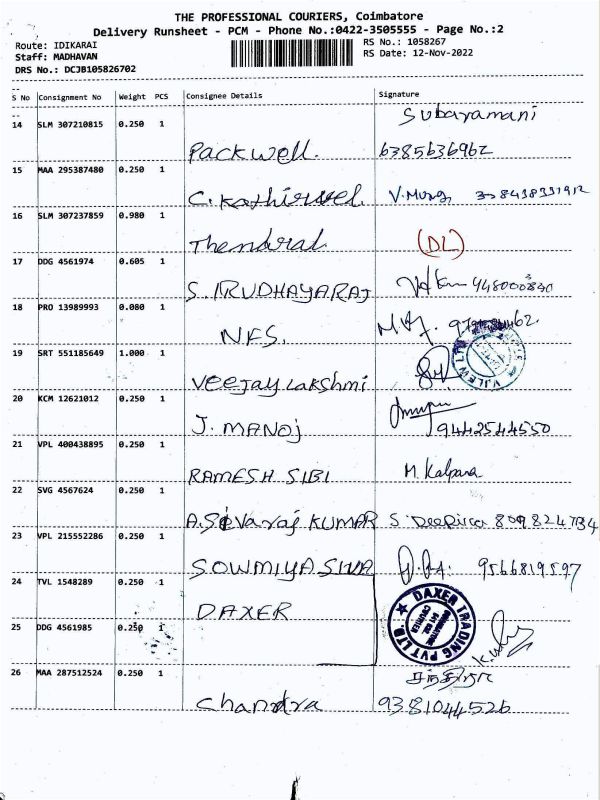 THE PROFESSIONAL COURIERS, Coimbatore
Delivery Runsheet - PCM - Phone No.:0422-3505555 - Page No.:2
Route: IDIKARAI
RS No.: 1058267
Staff: MADHAVAN
RS Date: 12-Nov-2022
DRS No.: DCJB105826702
S No Consignment No Weight PCS Consignee Details Signature
14 SLM 307210815 0.250 1 Packwell. Subaramani
6385636962
15 MAA 295387480 0.250 1 C. Kathirvel.
16 SLM 307237859 0.980 1 Thendral (DL)
17 DDG 4561974 0.605 1 S. IRUDHAYARAJ
18 PRO 13989993 0.080 1 NFS.
19 SRT 551185649 1.000 1 Veejay Lakshmi
20 KCM 12621012 0.250 1 J. MANOJ 9442544550
21 VPL 400438895 0.250 1 RAMESH SIBI M. Kalpana
22 SVG 4567624 0.250 1 A. Selvaraj KUMAR
23 VPL 215552286 0.250 1 SOWMIYA SIVA 9566819597
24 TVL 1548289 0.250 1 DAXER
DAXER TRADING PVT LTD.
25 DDG 4561985 0.250 1
26 MAA 287512524 0.250 1 Chandra
9381044526